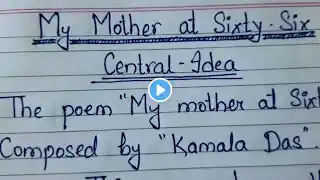 My Mother at Sixty-Six
Central-Idea
The poem "My mother at
Composed by "Kamala Das".